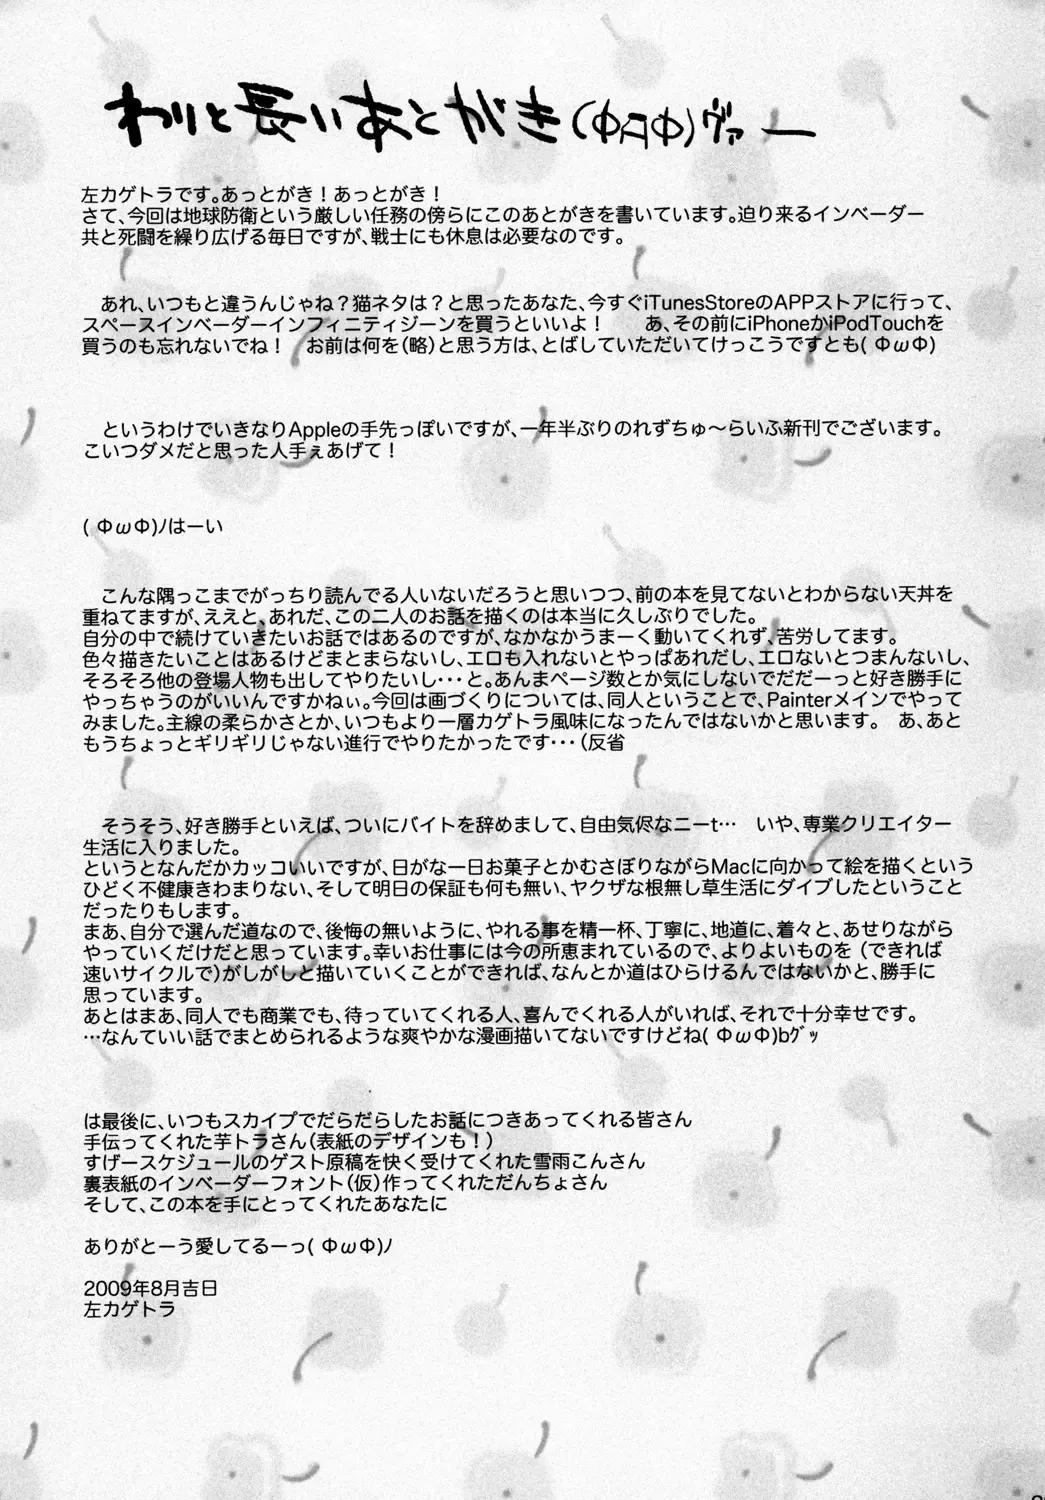 わりと長いあとがき(ФДФ)ヴァー
左カゲトラです。あっとがき！あっとがき！
さて、今回は地球防衛という厳しい任務の傍らにこのあとがきを書いています。迫り来るインベーダー
共と死闘を繰り広げる毎日ですが、戦士にも休息は必要なのです。
あれ、いつもと違うんじゃね？猫ネタは？と思ったあなた、今すぐiTunesStoreのAPPストアに行って、
スペースインベーダーインフィニティジーンを買うといいよ！　あ、その前にiPhoneかiPodTouchを
買うのも忘れないでね！　お前は何を（略）と思う方は、とばしていただいてけっこうですとも( ΦωΦ)
というわけでいきなりAppleの手先っぽいですが、一年半ぶりのれずちゅ〜らいふ新刊でございます。
こいつダメだと思った人手ぇあげて！
( ΦωΦ)ﾉはーい
こんな隅っこまでがっちり読んでる人いないだろうと思いつつ、前の本を見てないとわからない天丼を
重ねてますが、ええと、あれだ、この二人のお話を描くのは本当に久しぶりでした。
自分の中で続けていきたいお話ではあるのですが、なかなかうまーく動いてくれず、苦労してます。
色々描きたいことはあるけどまとまらないし、エロも入れないとやっぱあれだし、エロないとつまんないし、
そろそろ他の登場人物も出してやりたいし・・・と。あんまページ数とか気にしないでだだーっと好き勝手に
やっちゃうのがいいんですかねぃ。今回は画づくりについては、同人ということで、Painterメインでやって
みました。主線の柔らかさとか、いつもより一層カゲトラ風味になったんではないかと思います。　あ、あと
もうちょっとギリギリじゃない進行でやりたかったです・・・（反省
そうそう、好き勝手といえば、ついにバイトを辞めまして、自由気侭なニーt…　いや、専業クリエイター
生活に入りました。
というとなんだかカッコいいですが、日がな一日お菓子とかむさぼりながらMacに向かって絵を描くという
ひどく不健康きわまりない、そして明日の保証も何も無い、ヤクザな根無し草生活にダイブしたということ
だったりもします。
まあ、自分で選んだ道なので、後悔の無いように、やれる事を精一杯、丁寧に、地道に、着々と、あせりながら
やっていくだけだと思っています。幸いお仕事には今の所恵まれているので、よりよいものを（できれば
速いサイクルで）がしがしと描いていくことができれば、なんとか道はひらけるんではないかと、勝手に
思っています。
あとはまあ、同人でも商業でも、待っていてくれる人、喜んでくれる人がいれば、それで十分幸せです。
…なんていい話でまとめられるような爽やかな漫画描いてないですけどね( ΦωΦ)bｸﾞｯ
は最後に、いつもスカイプでだらだらしたお話につきあってくれる皆さん
手伝ってくれた芋トラさん（表紙のデザインも！）
すげースケジュールのゲスト原稿を快く受けてくれた雪雨こんさん
裏表紙のインベーダーフォント（仮）作ってくれただんちょさん
そして、この本を手にとってくれたあなたに
ありがとーう愛してるーっ( ΦωΦ)ﾉ
2009年8月吉日
左カゲトラ